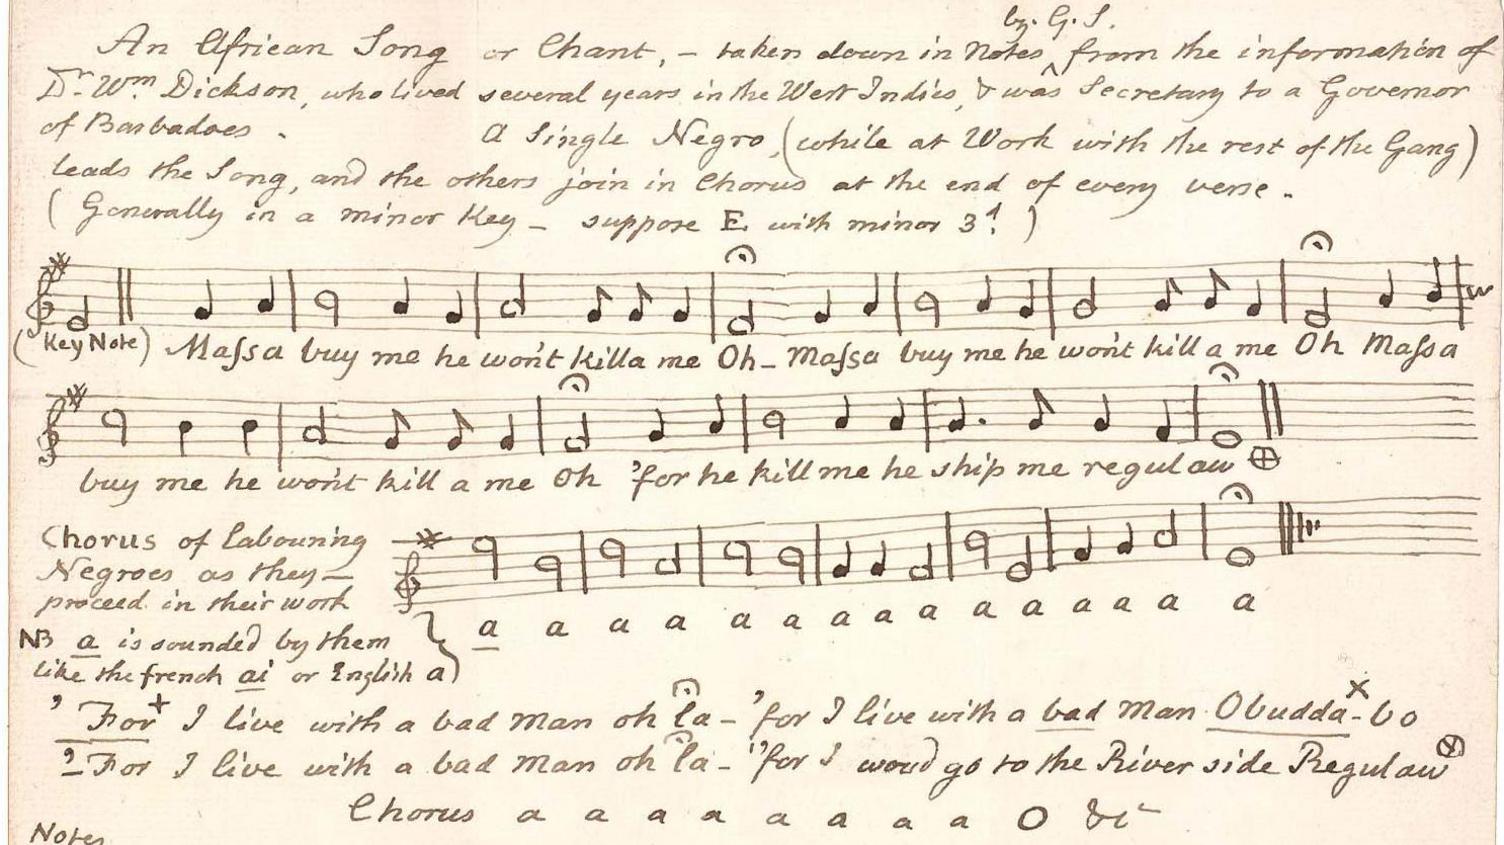 by G. S.
An African Song or Chant, – taken down in Notes ^ from the information of
Dr. Wm. Dickson, who lived several years in the West Indies, & was Secretary to a Governor
of Barbadoes. A Single Negro, (while at Work with the rest of the Gang)
leads the Song, and the others join in Chorus at the end of every verse.
(Generally in a minor Key – suppose E with minor 3d.)
(Key Note) Maſsa buy me he won't killa me Oh – Maſsa buy me he won't kill a me Oh Maſsa
buy me he won't kill a me Oh 'for he kill me he ship me regulaw ⊕
Chorus of labouring
Negroes as they –
proceed in their work
a a a a a a a a a a a a a a
NB a is sounded by them
like the french ai or English a)
'For+ I live with a bad man oh la – 'for I live with a bad man Obudda-bo x
'For I live with a bad man oh la – 'for I woud go to the River side Regulaw ⊗
Chorus a a a a a a a a O &c
Notes